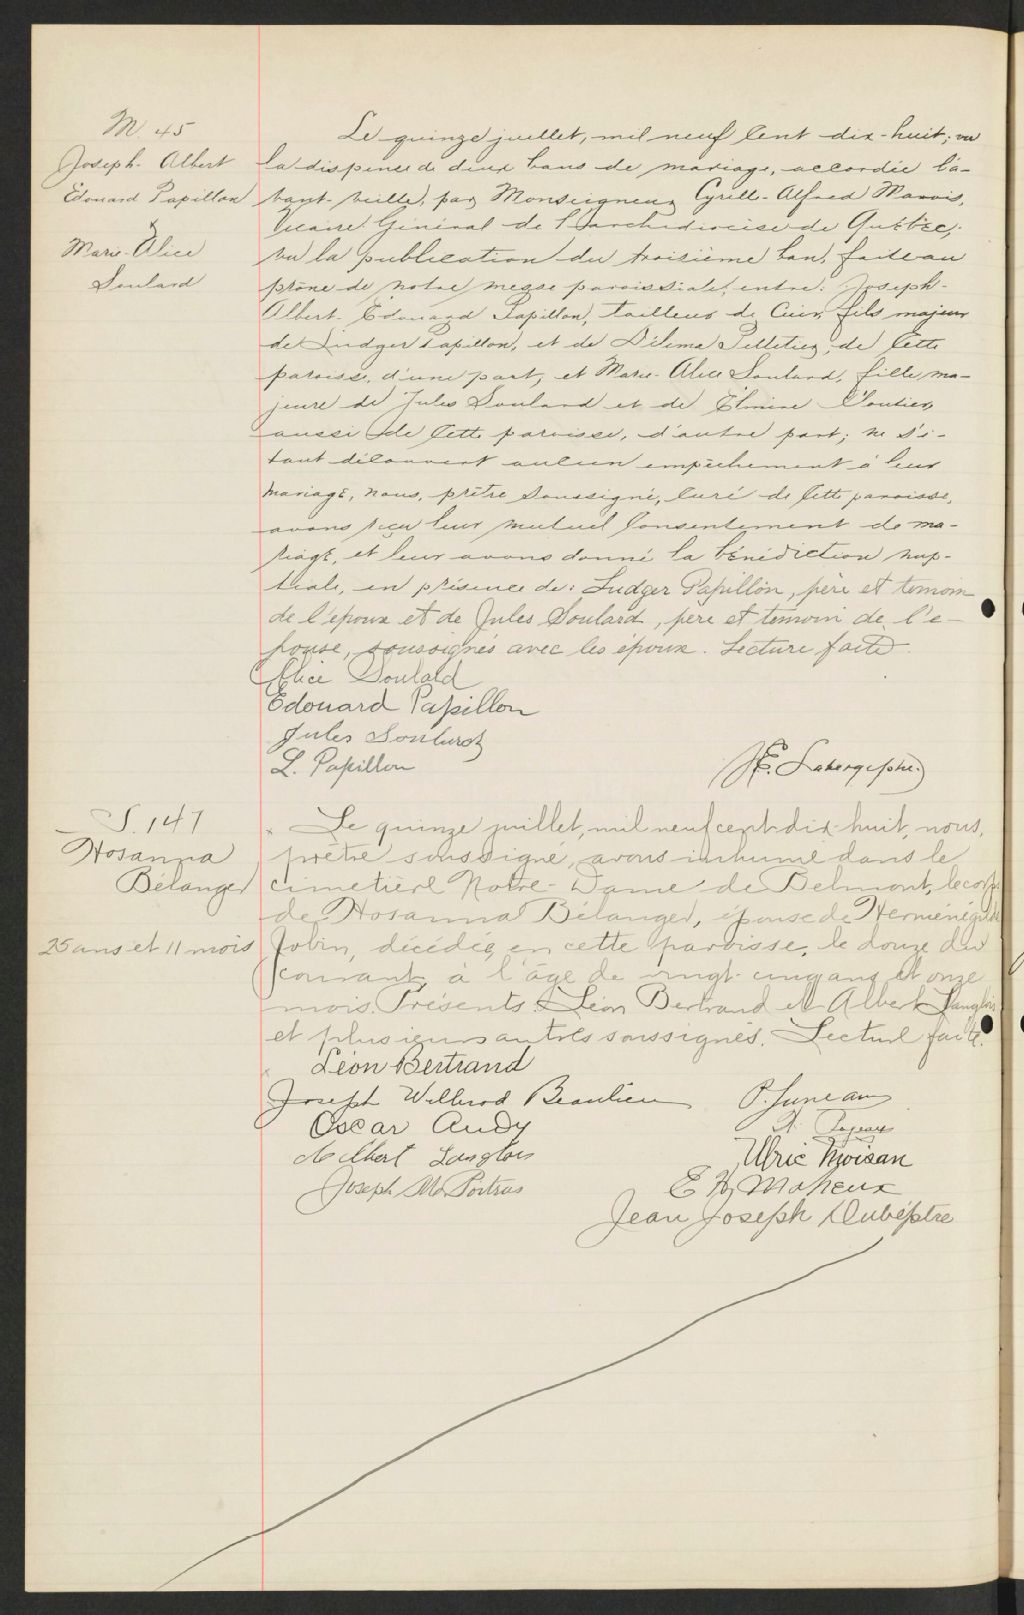 M. 45
Joseph-Albert
Edouard Papillon
&
Marie-Alice
Soulard
Le quinze juillet, mil neuf cent dix-huit; vu
la dispense de deux bans de mariage, accordée l'a-
vant-veille, par Monseigneur Cyrille-Alfred Marois,
Vicaire Général de l'archidiocèse de Québec;
vu la publication du troisième ban, faite au
prône de notre messe paroissiale, entre: Joseph-
Albert-Edouard Papillon, tailleur de cuir, fils majeur
de Ludger Papillon, et de Délima Pelletier, de cette
paroisse, d'une part; et Marie-Alice Soulard, fille ma-
jeure de Jules Soulard et de Elmire Cloutier,
aussi de cette paroisse, d'autre part; ne s'é-
tant découvert aucun empêchement à leur
mariage, nous, prêtre soussigné, curé de cette paroisse,
avons reçu leur mutuel consentement de ma-
riage, et leur avons donné la bénédiction nup-
tiale, en présence de: Ludger Papillon, père et temoin
de l'époux et de Jules Soulard, père et temoin de l'é-
pouse, soussignés avec les époux. Lecture faite.
Alice Soulard
Edouard Papillon
Jules Soulard
L. Papillon
E. Laberge ptre.
S. 147
Hosanna
Bélanger
25 ans et 11 mois
Le quinze juillet, mil neuf cent dix-huit, nous,
prêtre soussigné, avons inhumé dans le
cimetière Notre-Dame de Belmont, le corps
de Hosanna Bélanger, épouse de Herménégilde
Jobin, décédée en cette paroisse, le douze du
courant, à l'âge de vingt-cinq ans et onze
mois. Présents: Léon Bertrand et Albert Langlois
et plusieurs autres soussignés. Lecture faite.
Léon Bertrand
Joseph Wilbrod Beaulieu P. Juneau
Oscar Audy Pageau
Albert Langlois Ulric Moisan
Joseph Poitras E Maheux
Jean Joseph Dubé ptre